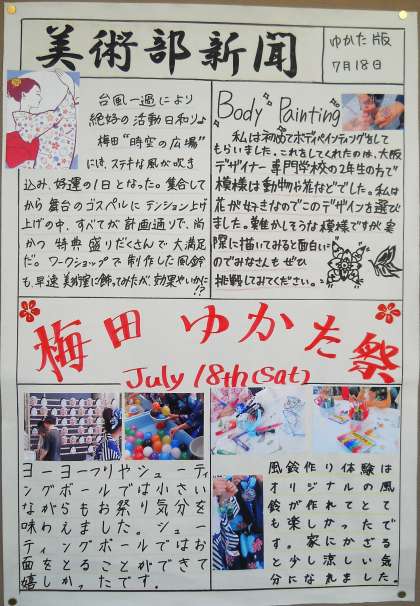 美術部新聞
ゆかた版
7月18日
台風一過により
絶好の活動日和り♪
梅田"時空の広場"
にも、ステキな風が吹き
込み、好運の1日となった。集合して
から舞台のゴスペルにテンション上げ
上げの中、すべてが計画通りで、尚
かつ特典盛りだくさんで大満足
だ。ワークショップで制作した風鈴
も早速美術室に飾ってみたが、効果やいかに!?
Body Painting
私は初めてボディペインティングをして
もらいました。これをしてくれたのは、大阪
デザイナー専門学校の2年生の方で
模様は動物や花などでした。私は
花が好きなのでこのデザインを選び
ました。難かしそうな模様ですが実
際に描いてみると面白い
のでみなさんもぜひ
挑戦してみてください。
梅田ゆかた祭
July 18th(Sat)
ヨーヨーつりやシューティ
ングボールでは小さい
ながらもお祭り気分を
味わえました。シュー
ティングボールではお
面をとることができて
嬉しかったです。
風鈴作り体験は
オリジナルの風
鈴が作れてとて
も楽しかったで
す。家にかざる
と少し涼しい気
分になれました。